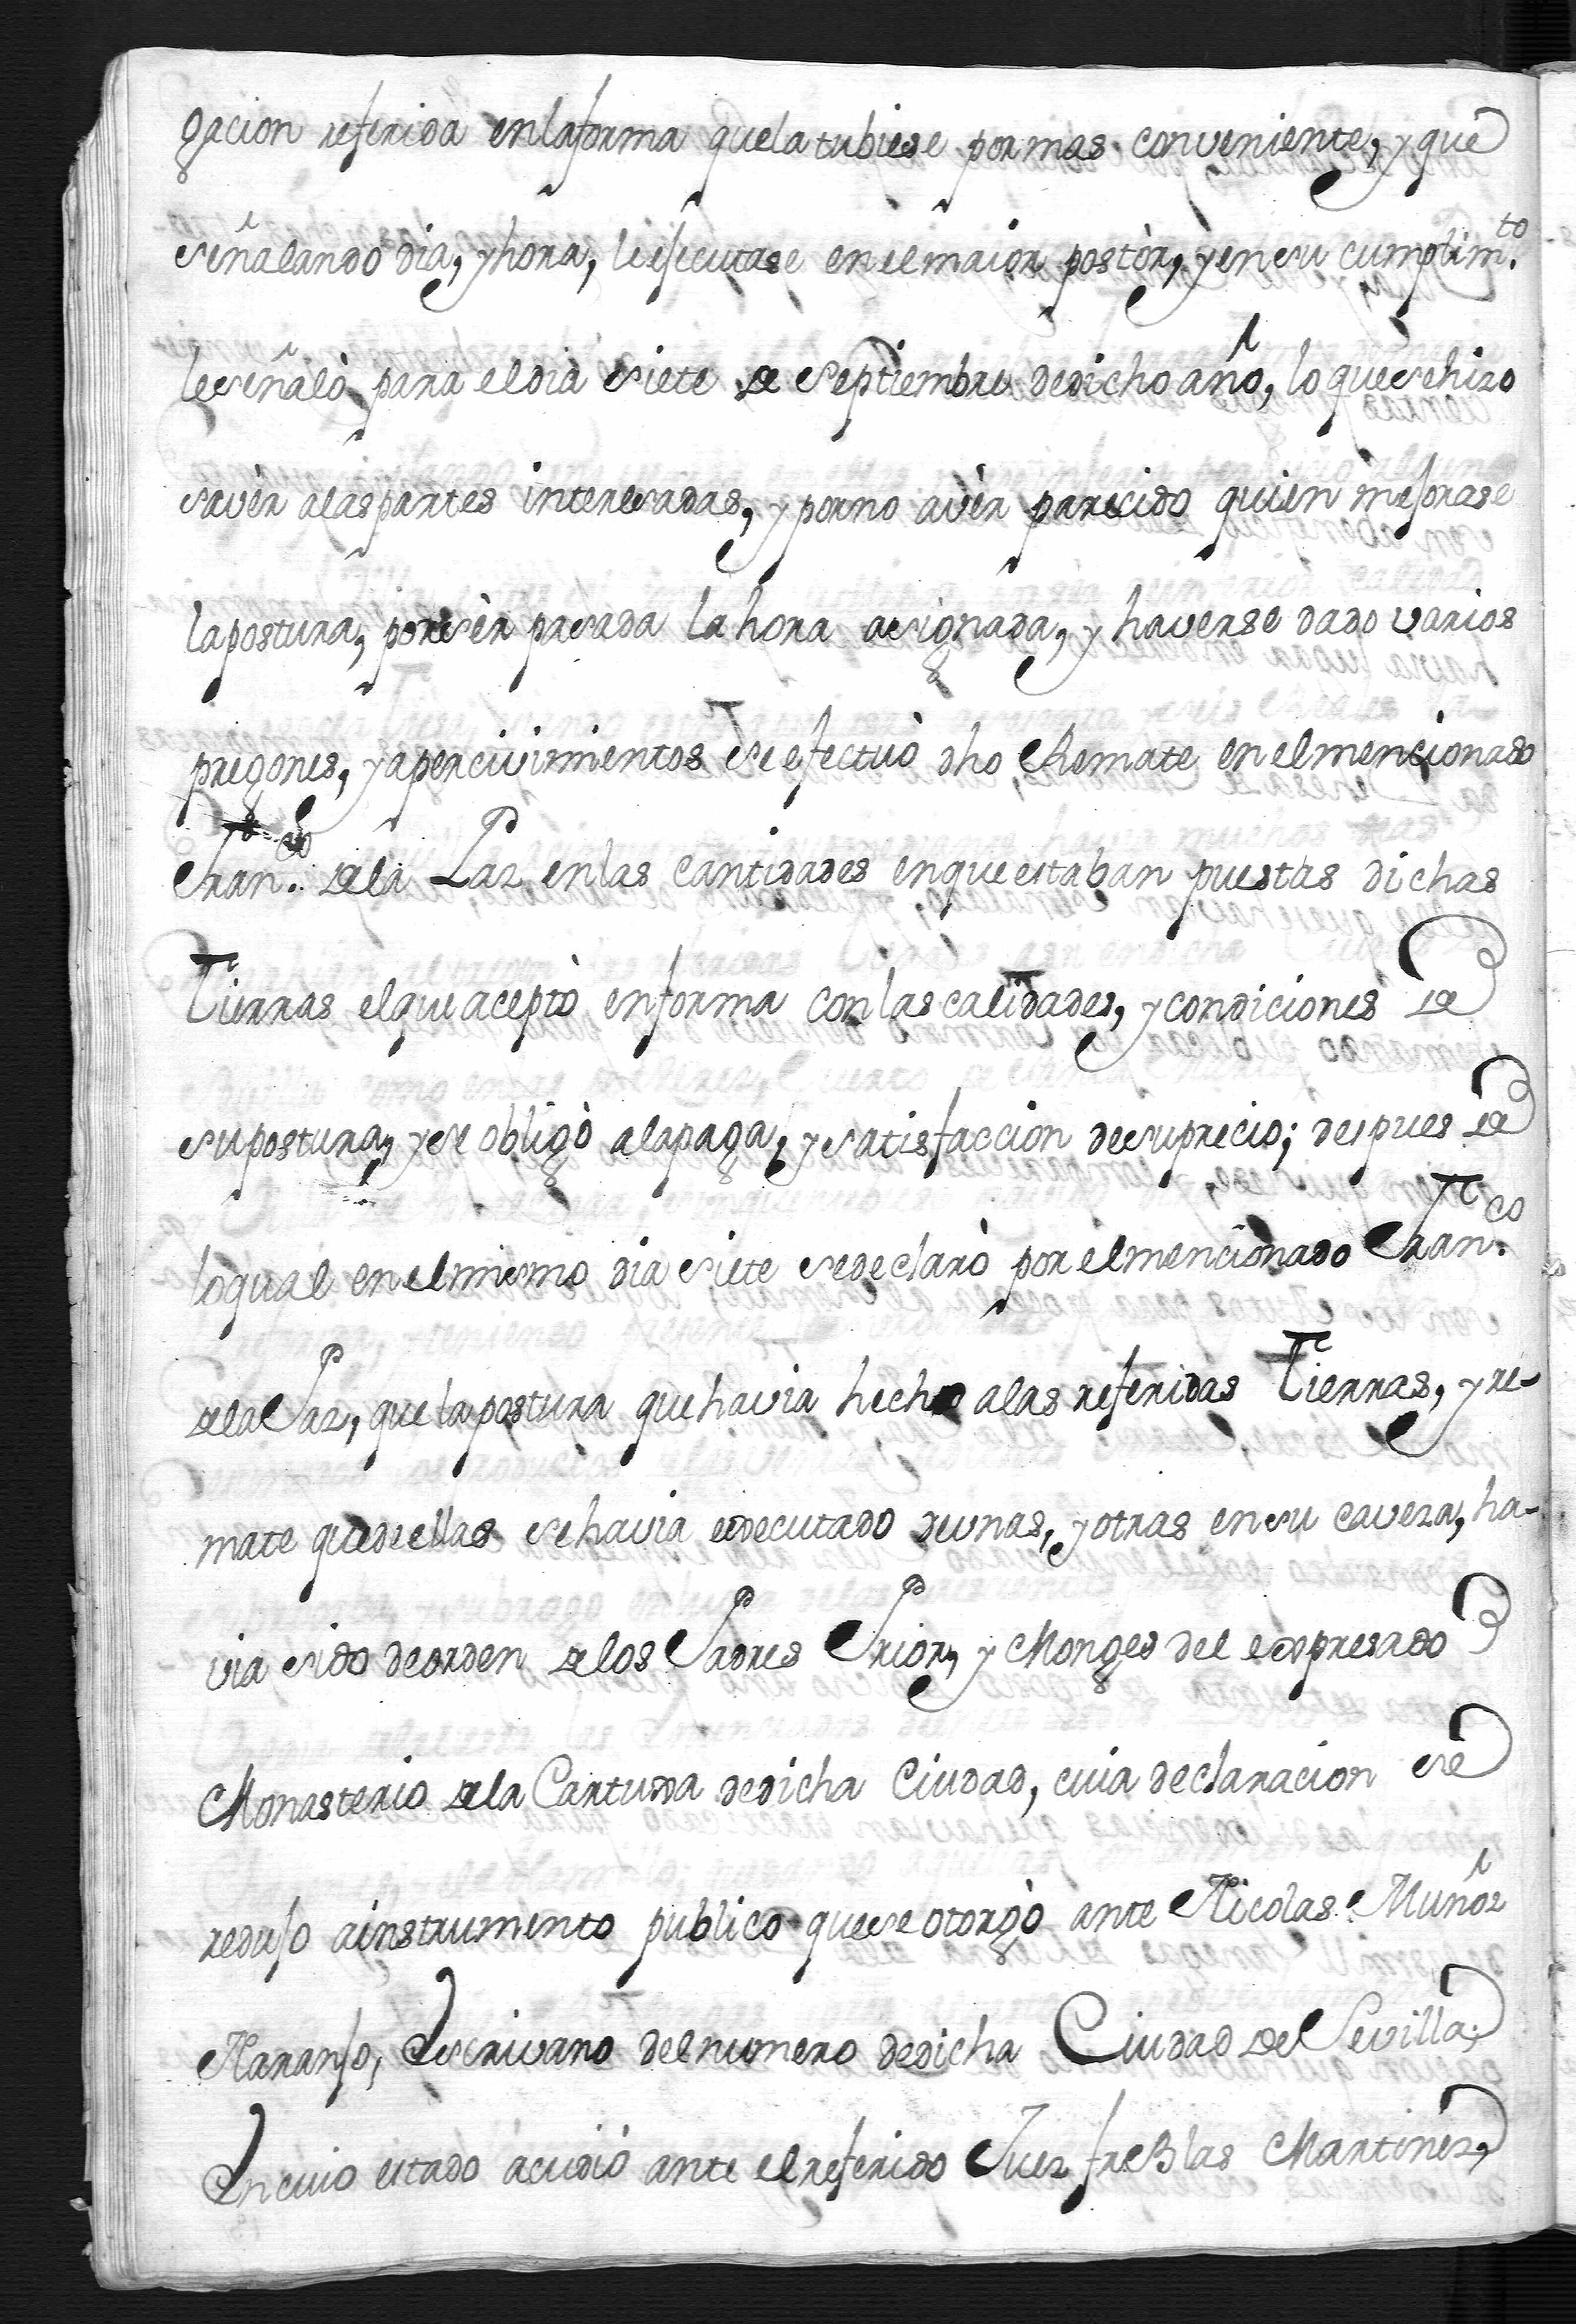 gacion referida enlaforma quela tubiese por mas conveniente, y que
señalando dia, y hora, le ejecutase en el maior postòr, y en su cumplim.to
le señalò para el dia siete de Septiembre de dicho año, lo que se hizo
savèr alas partes interesadas, y porno avèr parecido quien mejorase
la postura, por sèr pasada la hora asignada, y haverse dado varios
pregones, y apercivimientos se efectuò dho Remate en el mencionado
Fran.co dela Paz en las cantidades en que estaban puestas dichas
Tierras el que aceptò en forma con las calidades, y condiciones de
su postura, y se obligò ala paga, y satisfaccion de su precio; despues de
lo qual en el mismo dia siete se declarò por el mencionado Fran.co
dela Paz, que la postura que havia hecho alas referidas Tierras, y re-
mate que de ellas se havia executado de unas, y otras en su caveza, ha-
via sido de orden de los Padres Prior, y Monges del expresado
Monasterio dela Cartuxa de dicha Ciudad, cuia declaracion se
redujo a instrumento publico que se otorgò ante Nicolas Muñoz
Naranjo, Escrivano del numero de dicha Ciudad de Sevilla;
En cuio estado acudiò ante el referido Juez fr Blas Martinez,